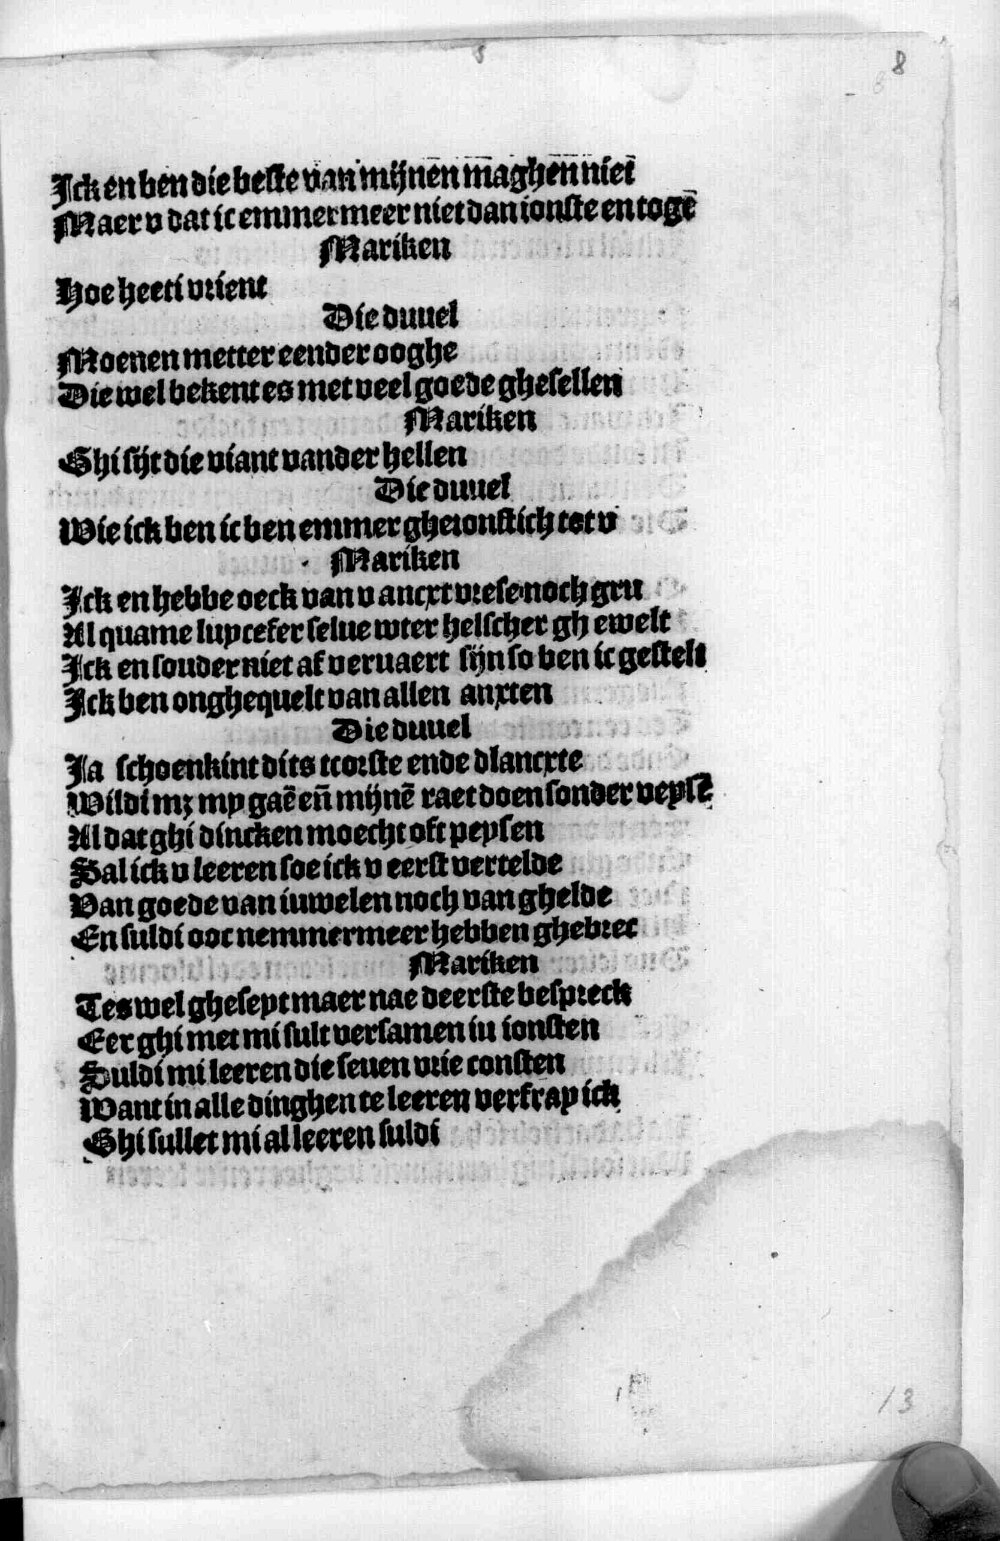 8
Ick en ben die beste van mijnen maghen niet
Maer v dat ic emmermeer niet dan ionste en togē
Mariken
Hoe heeti vrient
Die duuel
Moenen metter eender ooghe
Die wel bekent es met veel goede ghesellen
Mariken
Ghi sijt die viant vander hellen
Die duuel
Wie ick ben ic ben emmer gheionstich tot v
Mariken
Ick en hebbe oeck van v ancxt vrese noch gru
Al quame lupcefer selue wter helscher gh ewelt
Ick en souder niet af veruaert sijn so ben ic gestelt
Ick ben onghequelt van allen anxten
Die duuel
Ja schoenkint dits tcorste ende dlancxte
Wildi mz my gaē eñ mijnē raet doen sonder veysē
Al dat ghi dincken moecht oft peysen
Sal ick v leeren soe ick v eerst vertelde
Van goede van iuwelen noch van ghelde
En suldi ooc nemmermeer hebben ghebrec
Mariken
Tes wel gheseyt maer nae deerste bespreck
Eer ghi met mi sult versamen in ionsten
Suldi mi leeren die seuen vrie consten
Want in alle dinghen te leeren verfray ick
Ghi sullet mi al leeren suldi
13